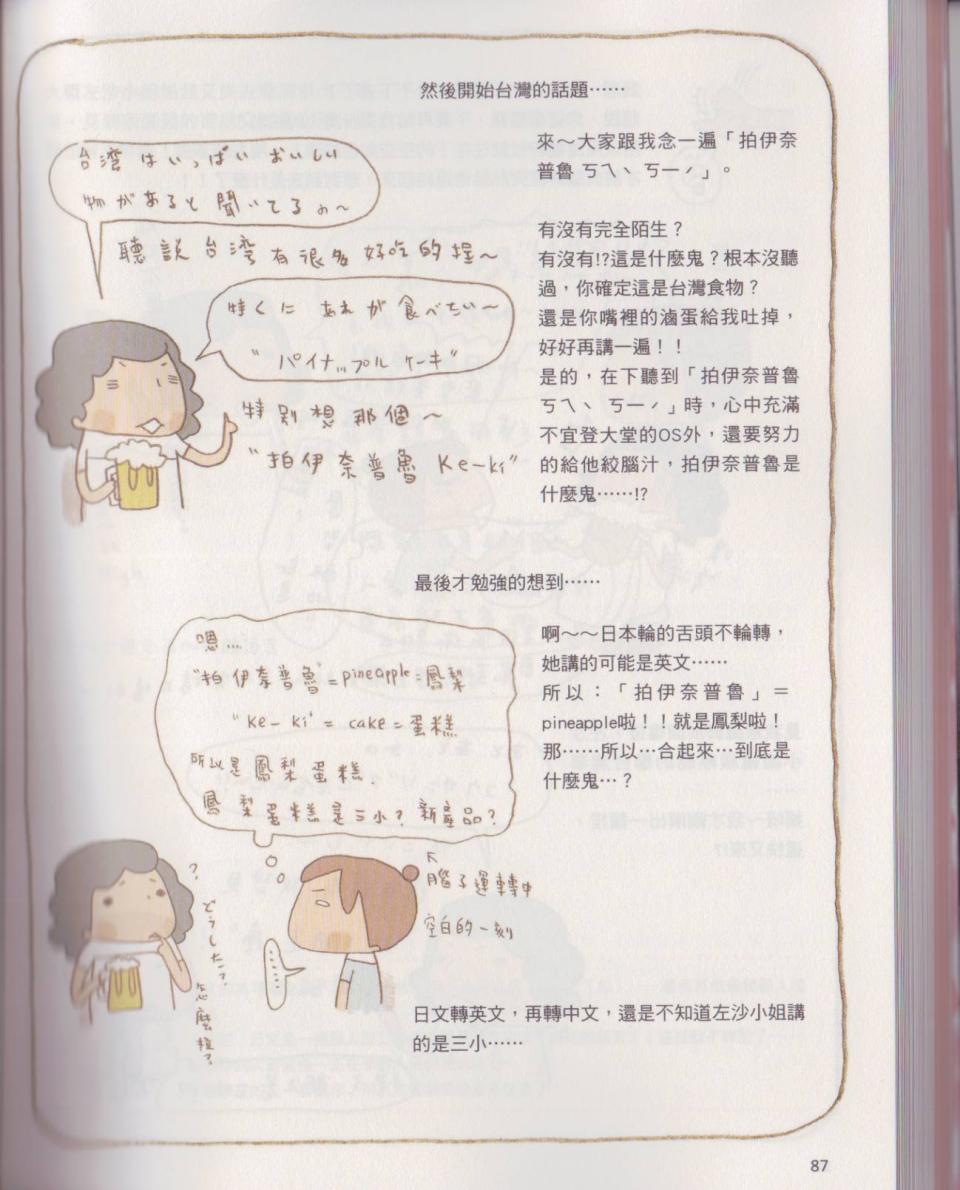 然後開始台灣的話題⋯⋯
來～大家跟我念一遍「拍伊奈
普魯 ㄎㄟˋ ㄎㄧˊ」。
有沒有完全陌生？
有沒有!?這是什麼鬼？根本沒聽
過，你確定這是台灣食物？
還是你嘴裡的滷蛋給我吐掉，
好好再講一遍！！
是的，在下聽到「拍伊奈普魯
ㄎㄟˋ ㄎㄧˊ」時，心中充滿
不宜登大堂的OS外，還要努力
的給他絞腦汁，拍伊奈普魯是
什麼鬼⋯⋯!?
台湾はいっぱいおいしい
物があると聞いてるの～
聽說台湾有很多好吃的捏～
特くに あれが 食べたい～
"パイナップルケーキ"
特別想那個～
"拍伊奈普魯 ke-ki"
最後才勉強的想到⋯⋯
啊～～日本輪的舌頭不輪轉，
她講的可能是英文⋯⋯
所以：「拍伊奈普魯」＝
pineapple啦！！就是鳳梨啦！
那⋯⋯所以⋯合起來⋯到底是
什麼鬼⋯？
嗯...
"拍伊奈普魯"=pineapple=鳳梨
"ke-ki" = cake = 蛋糕
所以是鳳梨蛋糕.
鳳梨蛋糕是三小？新產品？
?
どうしたの？
怎麼啦？
......
腦子運轉中
空白的一刻
日文轉英文，再轉中文，還是不知道左沙小姐講
的是三小⋯⋯
87